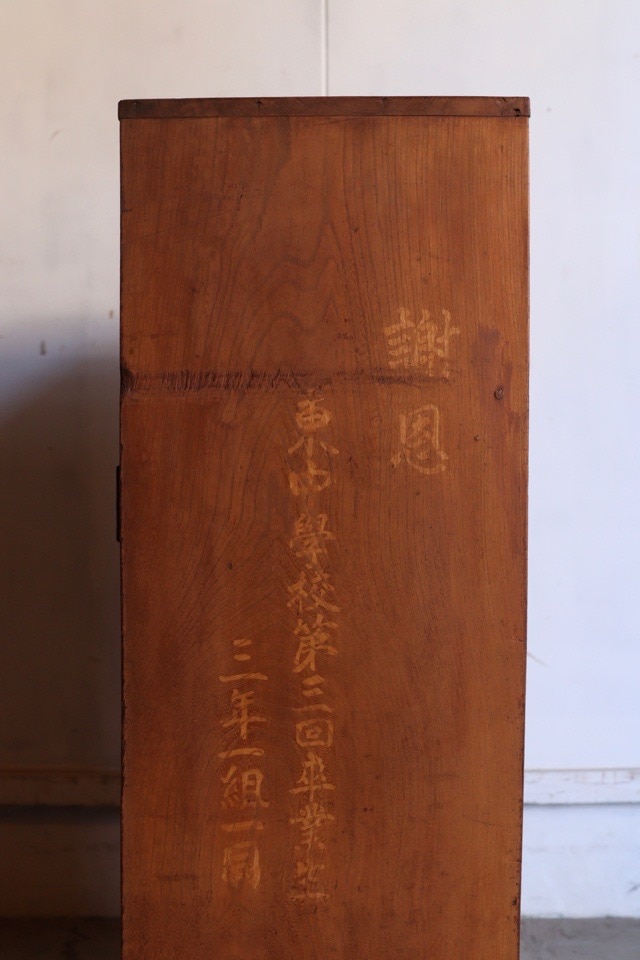 謝恩
東中學校第三回卒業生
三年一組一同